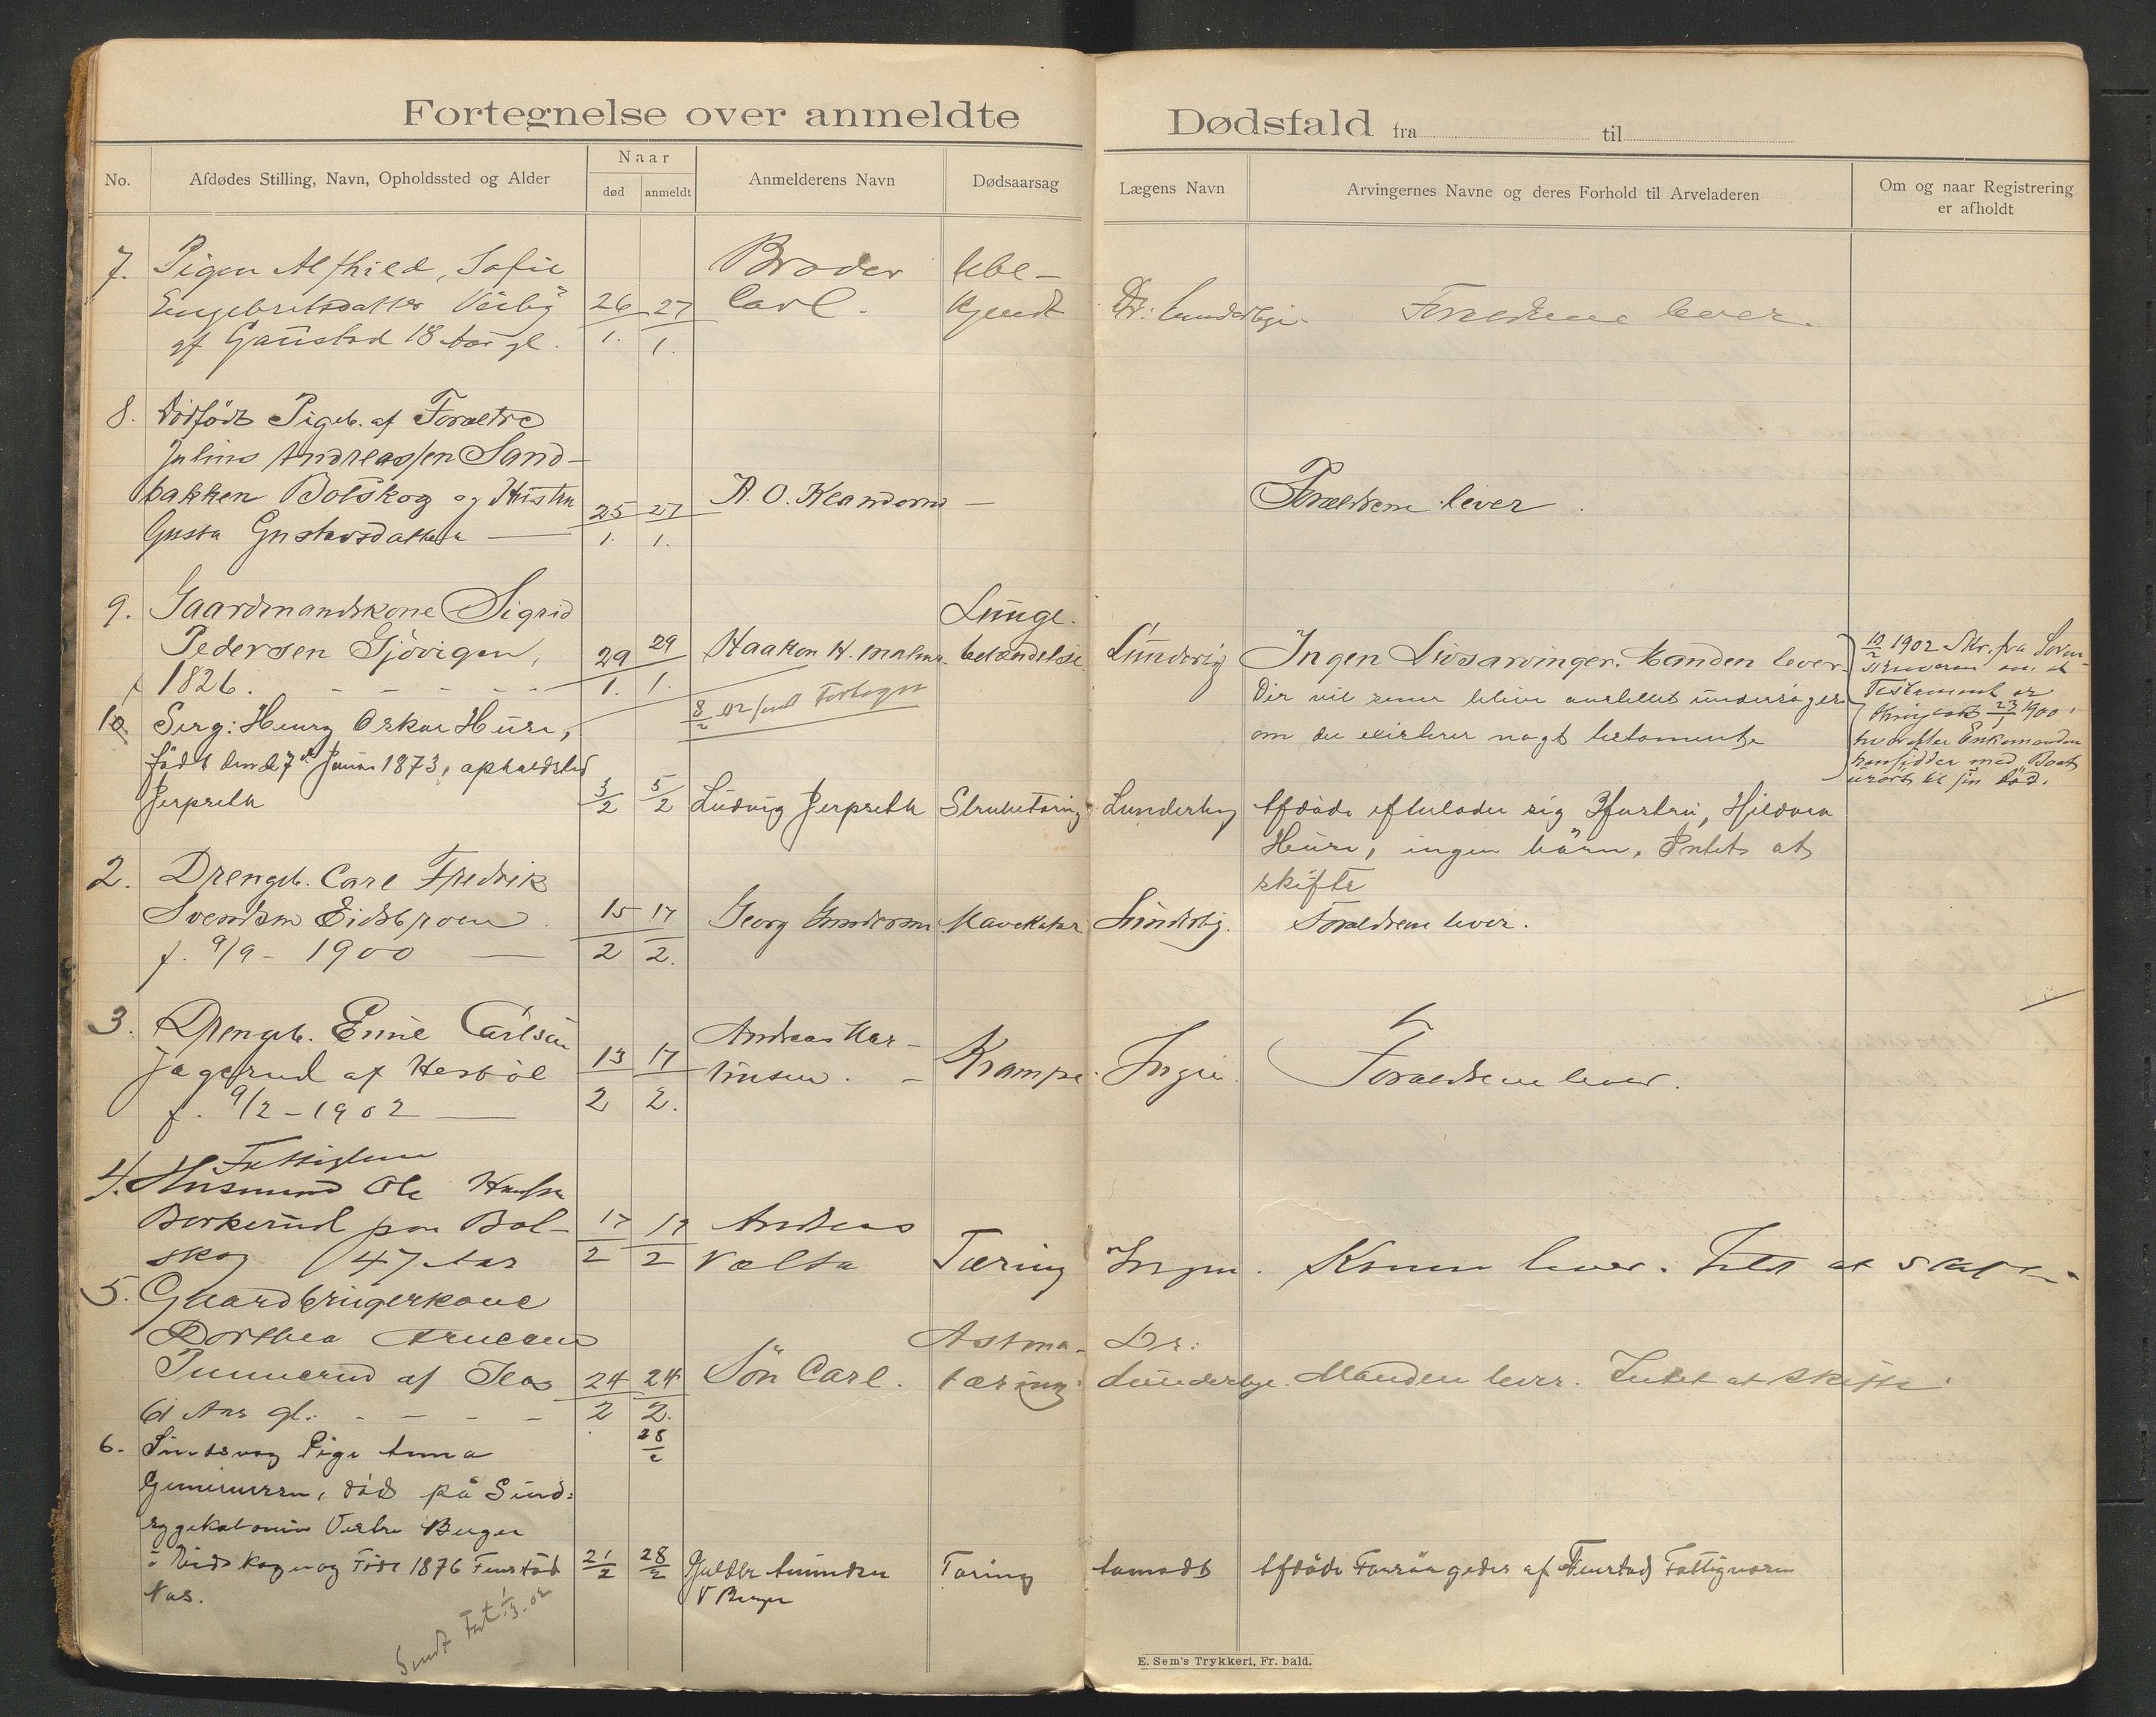 Fortegnelse over anmeldte Dødsfald fra til
No.
Afdødes Stilling, Navn, Opholdssted og Alder
Naar
død
anmeldt
Anmelderens Navn
Dødsaarsag
Lægens Navn
Arvingernes Navne og deres Forhold til Arveladeren
Om og naar Registrering
er afholdt
7. Pigen Alfhild, Sofie
Engebretsdatter
af Gaustad 18 Aar gl.
26/1. 27/1.
Broder
Carl.
Ube-
kjendt
Dr:
Forældrene lever.
8. Dødfødt Pigeb. af Forældre
Julius Andreassen Sand-
bakken Botskog og Hustru
Gusta Gustavsdatter
25/1. 27/1.
A. O.
Forældrene lever.
9. Gaardmandskone Sigrid
Pedersen Gjövigen,
1826.
29/1. 29/1.
Haakon H.
8/2 02
Lunge-
betændelse
Lunderby
Ingen Livsarvinger. Manden lever
Der vil senere blive anstillet undersøgelse
om der existerer nogt testamente
10/2 1902 Skr. fra Soren-
skriveren om at
Testament er
23/1 1900,
hvorefter Enkemanden
hensidder med Boet
urørt til sin død.
10. Serg: Henry Oskar Hurn,
født den 7de Juni 1873, opholdsted
Jerpseth
3/2 5/2
Ludvig Jerpseth
Strubetæring
Lunderby
Afdøde efterlader sig Hustru,
ingen børn, Intet at
skifte
2. Drengeb. Carl Fredrik
Svendsen
f. 9/9 - 1900
15/2 17/2.
Georg Gundersen
Mavekatar
Lunderby.
Forældrene lever.
3. Drengeb. Carlsen
Jagerud af Herbøl
f. 9/2 - 1902
13/2 17/2.
Andreas Mar-
tinsen.
Krampe.
Ingen.
Forældrene lever.
4. Fattiglem
Husmand Ole Hansen
Borkerud paa Bot-
skog 47 Aar
17/2 17/2
Andreas
Tæring
Ingen.
Konen lever. Intet at skifte.
5. Gaardbrugerkone
Dorthea Arnesen
Tunnerud af
61 Aar gl.
24/2 24/2.
Sön Carl.
Astma-
tæring.
Dr:
Lunderbye.
Manden lever. Intet at skifte
6. Sindsvag Pige Anna
død på Sind-
sygekolonien Vestre Berger
i Eidskogen og Født 1876
21/2 28/2
28/2
V Berger
Tæring
Afdøde af Fattigvæsen
Sendt 1/3-02
E. Sem's Trykkeri, Fr. hald.